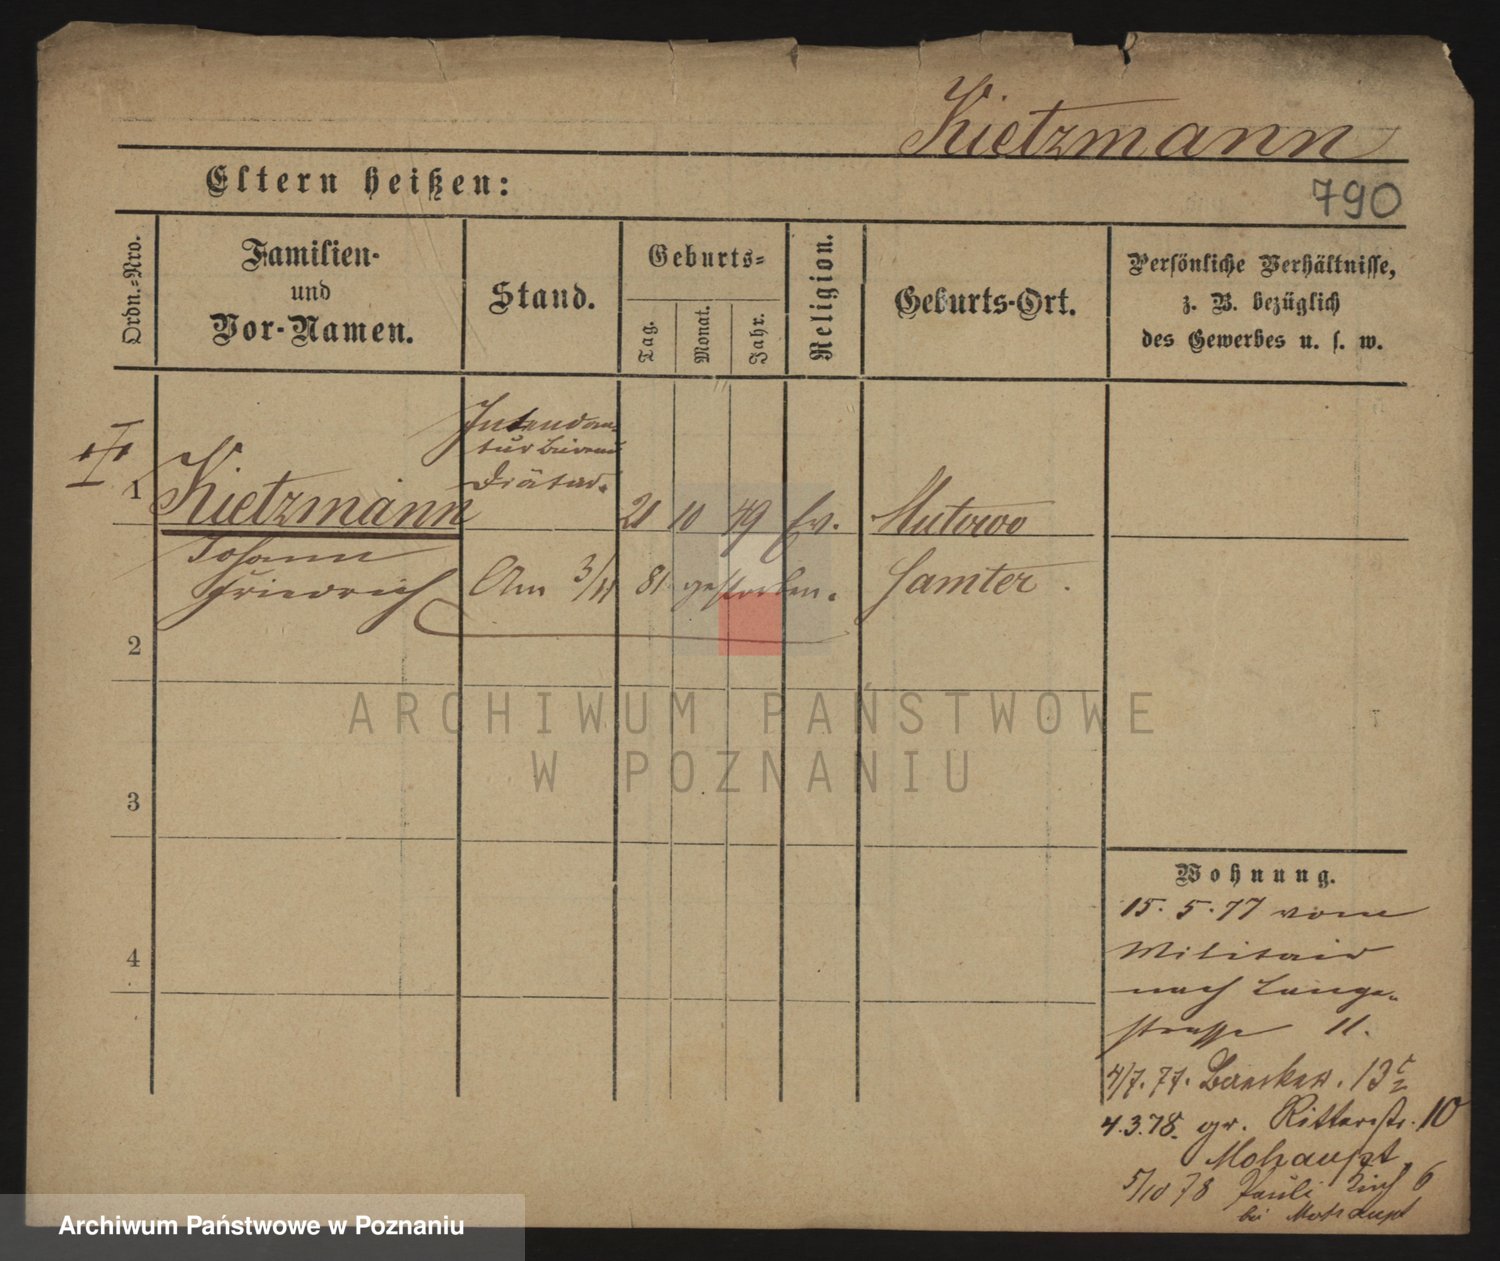 Kietzmann
Eltern heißen:
790
Ordn.-Nro.
Familien-
und
Vor-Namen.
Stand.
Geburts-
Tag.
Monat.
Jahr.
Religion.
Geburts-Ort.
Persönliche Verhältnisse,
z. B. bezüglich
des Gewerbes u. s. w.
1
Kietzmann
Johann
Friedrich
Intendan-
tur büreau
Diätar.
21 10 49 Ev.
Mutowo
Samter.
Am 3/11 81 gestorben.
2
3
4
Wohnung.
15. 5. 77 vom
Militair
nach Lange-
strasse 11.
4/7. 77. 13
4.3.78. gr. Ritterstr. 10
Mohaupt
5/10 78 Pauli Kirch 6
bei Mohaupt
ARCHIWUM PAŃSTWOWE
W POZNANIU
Archiwum Państwowe w Poznaniu